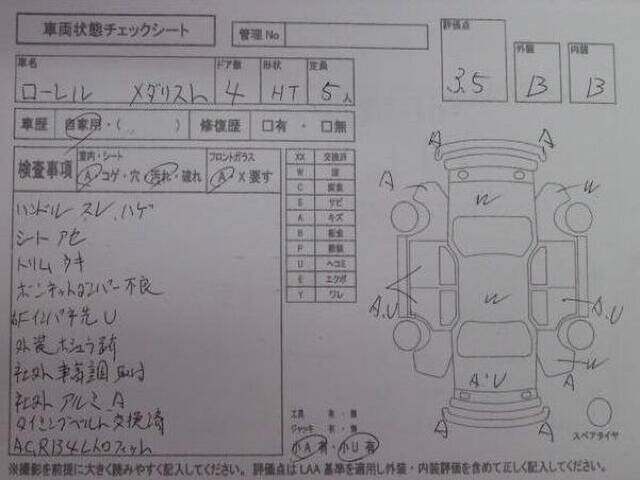 車両状態チェックシート
管理No
評価点 3.5
外装 B
内装 B
車名 ローレル メダリスト
ドア数 4
形状 HT
定員 5人
車歴 自家用・( )
修復歴 □有・□無
検査事項
室内・シート
A コゲ・穴 汚れ・破れ
フロントガラス
A X要す
ハンドル スレ、ハゲ
シート アセ
トリム ウキ
ボンネットダンパー不良
右Fインパネ先 U
外装 ホシュウ跡
社外 車高調 取付
社外 アルミ A
タイミングベルト交換済
AC,R134レトロフィット
XX 交換済
W 波
C 腐食
S サビ
A キズ
B 板金
P 塗装
U ヘコミ
E エクボ
Y ワレ
A
A
W
W
A.U
W
A.U
W
A
A.U
A
スペアタイヤ
工具 有・無
ジャッキ 有・無
小A有・小U有
※撮影を前提に大きく読みやすく記入してください。 評価点はLAA基準を適用し外装・内装評価を含めて正しく記入してください。